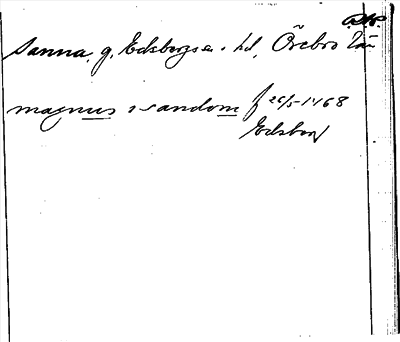 Sanna, g, Edsbergs sn. o. hd, Örebro län
magnus i sandom f 26/5-1468
Edsberg